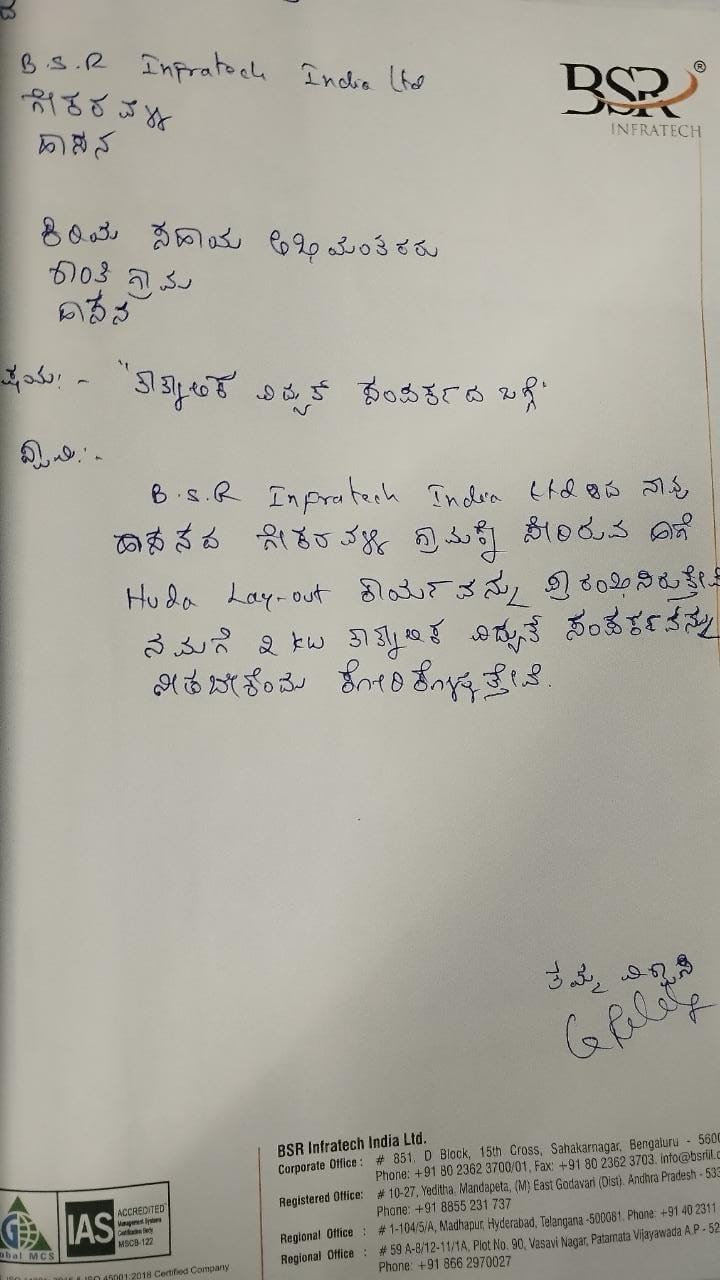 ದ
B.S.R Inpratech India Ltd
ಗೇಕರವಳ್ಳಿ
ಹಾಸನ
BSR®
INFRATECH
ಕಿರಿಯ ಸಹಾಯ ಅಭಿಯಂತರರು
ಶಾಂತಿಗ್ರಾಮ
ಹಾಸನ
ಷಯ:- "ತಾತ್ಕಾಲಿಕ ವಿದ್ಯುತ್ ಸಂಪರ್ಕದ ಬಗ್ಗೆ"
B.S.R Inpratech India Ltd ಇಂದ ನಾವು
ಹಾಸನದ ಗೇಕರವಳ್ಳಿ ಗ್ರಾಮಕ್ಕೆ ಸೇರಿರುವ
Huda Lay-out ಕಾರ್ಯವನ್ನು ಪ್ರಾರಂಭಿಸಿರುತ್ತೇವೆ
ನಮಗೆ 2 KW ತಾತ್ಕಾಲಿಕ ವಿದ್ಯುತ್ ಸಂಪರ್ಕವನ್ನು
ನೀಡಬೇಕೆಂದು ಕೋರಿಕೊಳ್ಳುತ್ತೇವೆ.
ತಮ್ಮ ವಿಶ್ವಾಸಿ
BSR Infratech India Ltd.
Corporate Office : # 851, D Block, 15th Cross, Sahakarnagar, Bengaluru - 5600
Phone: +91 80 2362 3700/01, Fax: +91 80 2362 3703. info@bsriil.c
Registered Office: # 10-27, Yeditha, Mandapeta, (M) East Godavari (Dist). Andhra Pradesh - 533
Phone: +91 8855 231 737
Regional Office : # 1-104/5/A, Madhapur, Hyderabad, Telangana -500081. Phone: +91 40 2311
Regional Office : # 59 A-8/12-11/1A, Plot No. 90, Vasavi Nagar, Patamata Vijayawada A.P - 52
Phone: +91 866 2970027
obal MCS
IAS
ACCREDITED
Management Systems
Certification Body
MSCB-122
ISO 45001:2018 Certified Company